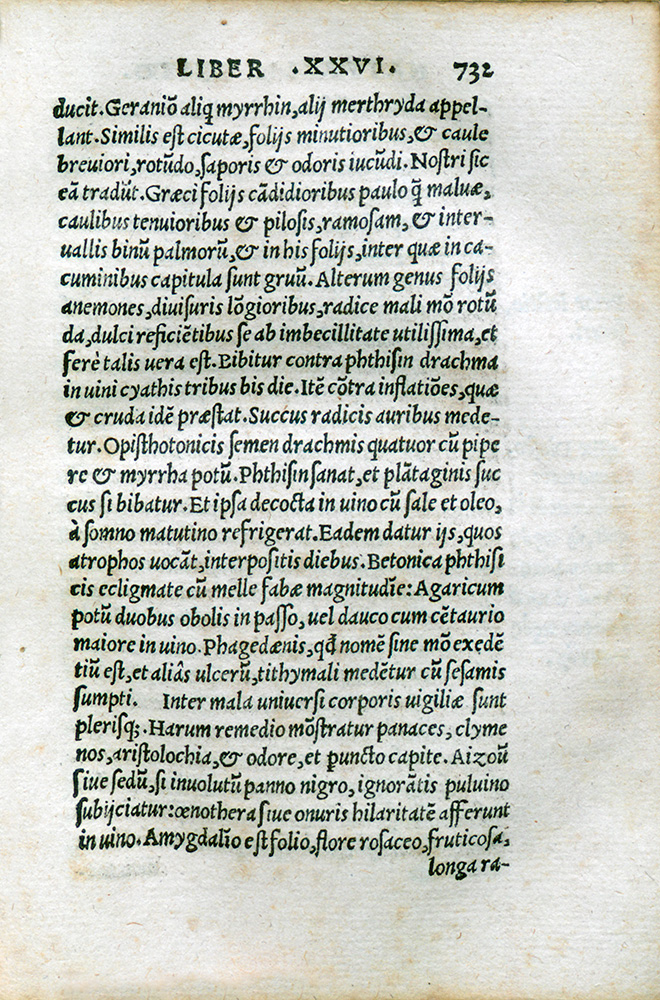 LIBER .XXVI. 732
ducit. Geraniō aliq; myrrhin, alij merthryda appel-
lant. Similis est cicutæ, folijs minutioribus, & caule
breuiori, rotūdo, saporis & odoris iucūdi. Nostri sic
eā tradūt. Græci folijs cādidioribus paulo q̄ maluæ,
caulibus tenuioribus & pilosis, ramosam, & inter-
uallis binū palmorū, & in his folijs, inter quæ in ca-
cuminibus capitula sunt gruū. Alterum genus folijs
anemones, diuisuris lōgioribus, radice mali mō rotū
da, dulci reficiētibus se ab imbecillitate utilissima, et
ferè talis uera est. Bibitur contra phthisin drachma
in uini cyathis tribus bis die. Itē cōtra inflatiōes, quæ
& cruda idē præstat. Succus radicis auribus mede-
tur. Opisthotonicis semen drachmis quatuor cū pipe
re & myrrha potū. Phthisin sanat, et plātaginis suc
cus si bibatur. Et ipsa decocta in uino cū sale et oleo,
à somno matutino refrigerat. Eadem datur ijs, quos
atrophos uocāt, interpositis diebus. Betonica phthisi
cis ecligmate cū melle fabæ magnitudīe: Agaricum
potū duobus obolis in passo, uel dauco cum cētaurio
maiore in uino. Phagedænis, qđ nomē sine mō exedē
tiū est, et aliâs ulcerū, tithymali medētur cū sesamis
sumpti. Inter mala uniuersi corporis uigiliæ sunt
plerisq;. Harum remedio mōstratur panaces, clyme
nos, aristolochia, & odore, et puncto capite. Aizoū
siue sedū, si inuolutū panno nigro, ignorātis puluino
subijciatur: œnothera siue onuris hilaritatē afferunt
in uino. Amygdalīo est folio, flore rosaceo, fruticosa,
longa ra-